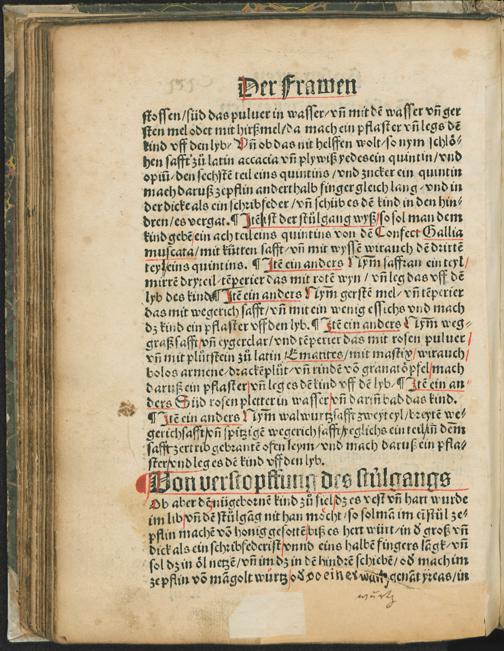 Der Frawen
stossen/süd das puluer in wasser/vñ mit dē wasser vñ ger
sten mel odet mit hirßmel/da mach ein pflaster vñ legs dē
kind vff den lyb/ Vñ ob das nit helffen wolt/so nym schlö-
hen safft zü latin accacia vñ plywiß yedes ein quintin/vnd
opiū/den sechstē teil eins quintins/vnd zucker ein quintin
mach daruß zepflin anderthalb finger gleich lang/vnd in
der dicke als ein schribfeder/vñ schüb es dē kind in den hin-
dren/es vergat. ¶ Itē ist der stülgang wyß/so sol man dem
kind gebē ein achteil eins quintins von dē Confect Gallia
muscata/mit kütten safft/vñ mit wyssē wirauch dē drittē
teyl eins quintins. ¶ Itē ein anders Nym saffran ein teyl/
mirrē dryteil/tēperier das mit rotē wyn/vñ leg das vff dē
lyb des kinds ¶ Itē ein anders Nym gerstē mel/vñ tēperier
das mit wegerich safft/vñ mit ein wenig essichs vnd mach
dz kind ein pflaster vff den lyb. ¶ Itē ein anders Nym weg-
graß safft/vñ eygerclar/vnd tēperier das mit rosen puluer/
vñ mit plütstein zü latin/Ematites/mit mastix/wirauch/
bolos armene/drackēplüt/vñ rindē vō granatöpfel/mach
daruß ein pflaster/vñ leg es dē kind vff dē lyb/ ¶ Itē ein an
ders Süd rosen pletter in wasser/vñ darin bad das kind.
¶ Itē ein anders Nym walwurtz safft zwey teyl/breytē we-
gerich safft/vñ spitzigē wegerich safft/yeglichs ein teil/in dēm
safft zertrib gebrantē ofen leym/vnd mach daruß ein pfla-
ster/vnd leg es dē kind vff den lyb.
Von verstopffung des stülgangs
Ob aber dē nügebornē kind zü fiel/dz es vest vñ hart wurde
im lib/vñ dē stülgāg nit han möcht/so sol mā im ei stül ze-
pflin machē vō honig gesottē/biß es hert würt/in d groß vñ
dick als ein schribfeder ist/vnnd eins halbē fingers lāgk/vñ
sol dz in öl netzē/vñ im dz in dē hindrē schiebē/od mach im
ze pflin vō māgolt würtz/od vo einer wurtz genāt yreas/in
wurtz